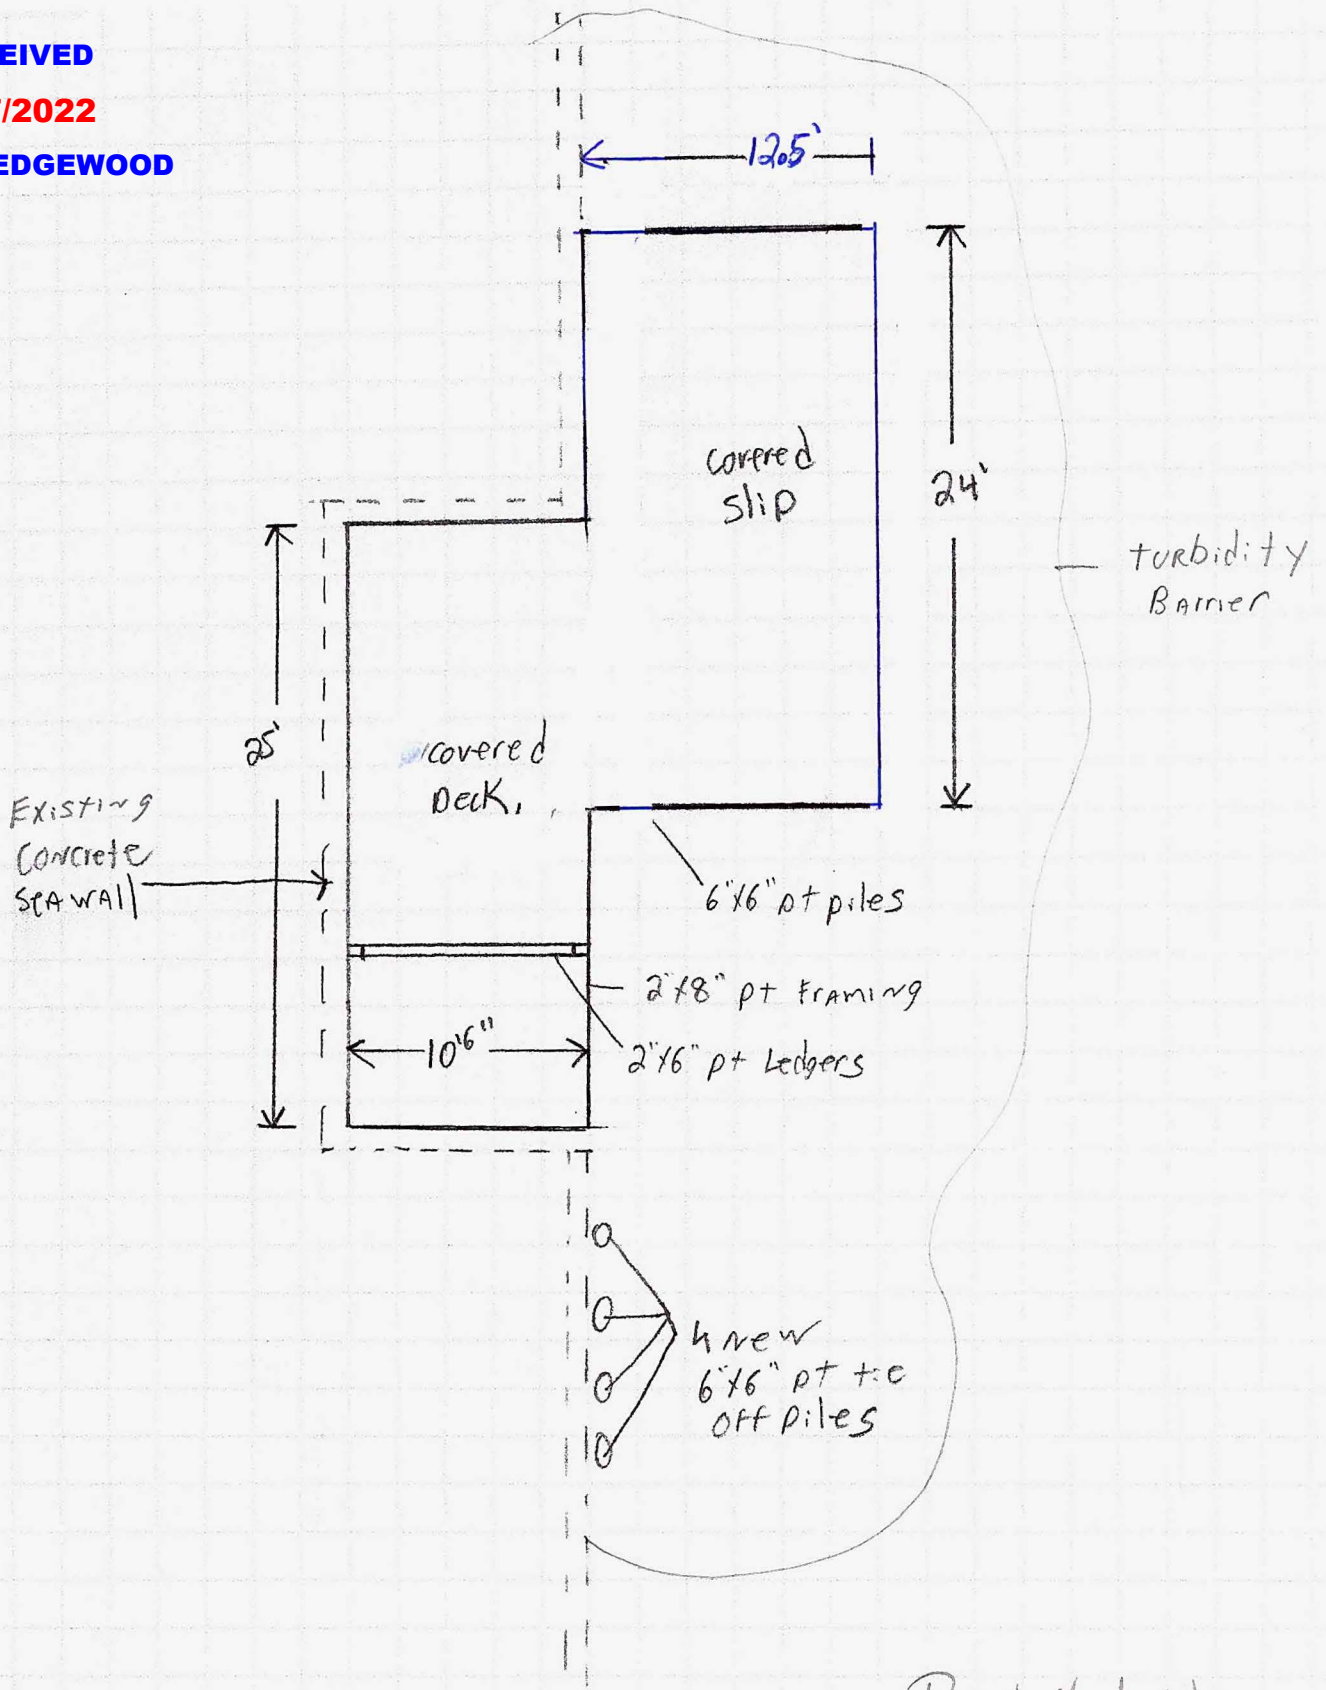 EIVED
/2022
EDGEWOOD
12.5'
covered
slip
24'
turbidity
Barrier
25'
covered
Deck.
Existing
Concrete
SEAWAll
6"x6" pt piles
2"x8" pt Framing
10'6"
2"x6" pt Ledgers
4 new
6"x6" pt tie
off piles